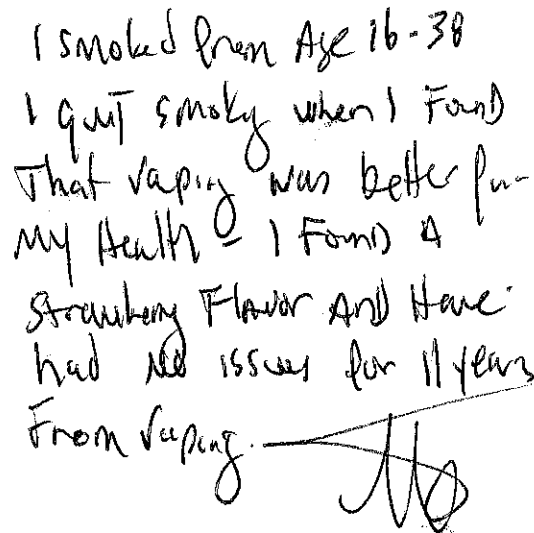 I smoked from Age 16-38
I quit smoking when I Found
That vaping was better for
My Health - I Found A
Strawberry Flavor And Have
had no issues for 11 years
From Vaping.